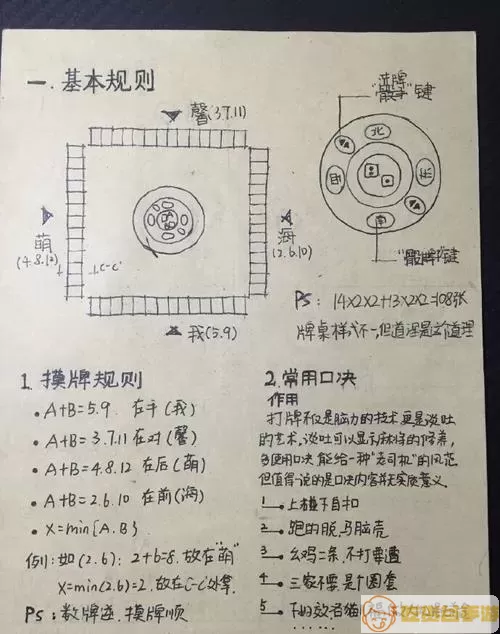 一.基本规则
馨(3.7.11)
萌
(4.8.12)
C-C'
海
(2.6.10)
我(5.9)
洗牌
"骰子"键
北
西
东
南
"骰牌"键
PS: 14×2×2+13×2×2=108张
牌桌样式不一,但道理是这个道理
1.摸牌规则
• A+B=5.9 在手(我)
• A+B=3.7.11在对(馨)
• A+B=4.8.12 在后(萌)
• A+B=2.6.10 在前(海)
• X=min{A.B}
例:如(2.6): 2+6=8.放在"萌"
X=min(2.6)=2.放在C-C'处拿.
PS: 数牌逆.摸牌顺
2.常用口决
作用
打牌不仅是脑力的技术更是谈吐
的艺术,谈吐可以显示你的修养,
多使用口决,能给一种"老司机"的风范
但值得一说的是口决内容并无实质意义.
1 上碰下自扣
2 跑的脱,马脑壳
3 幺鸡二条,不打要遭
4 三家不要,是个圈套
5